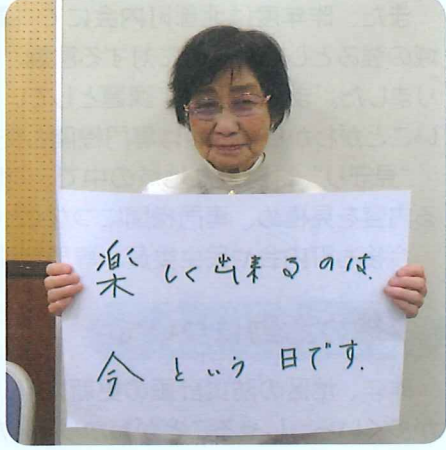 楽しく出来るのは、
今という日です.